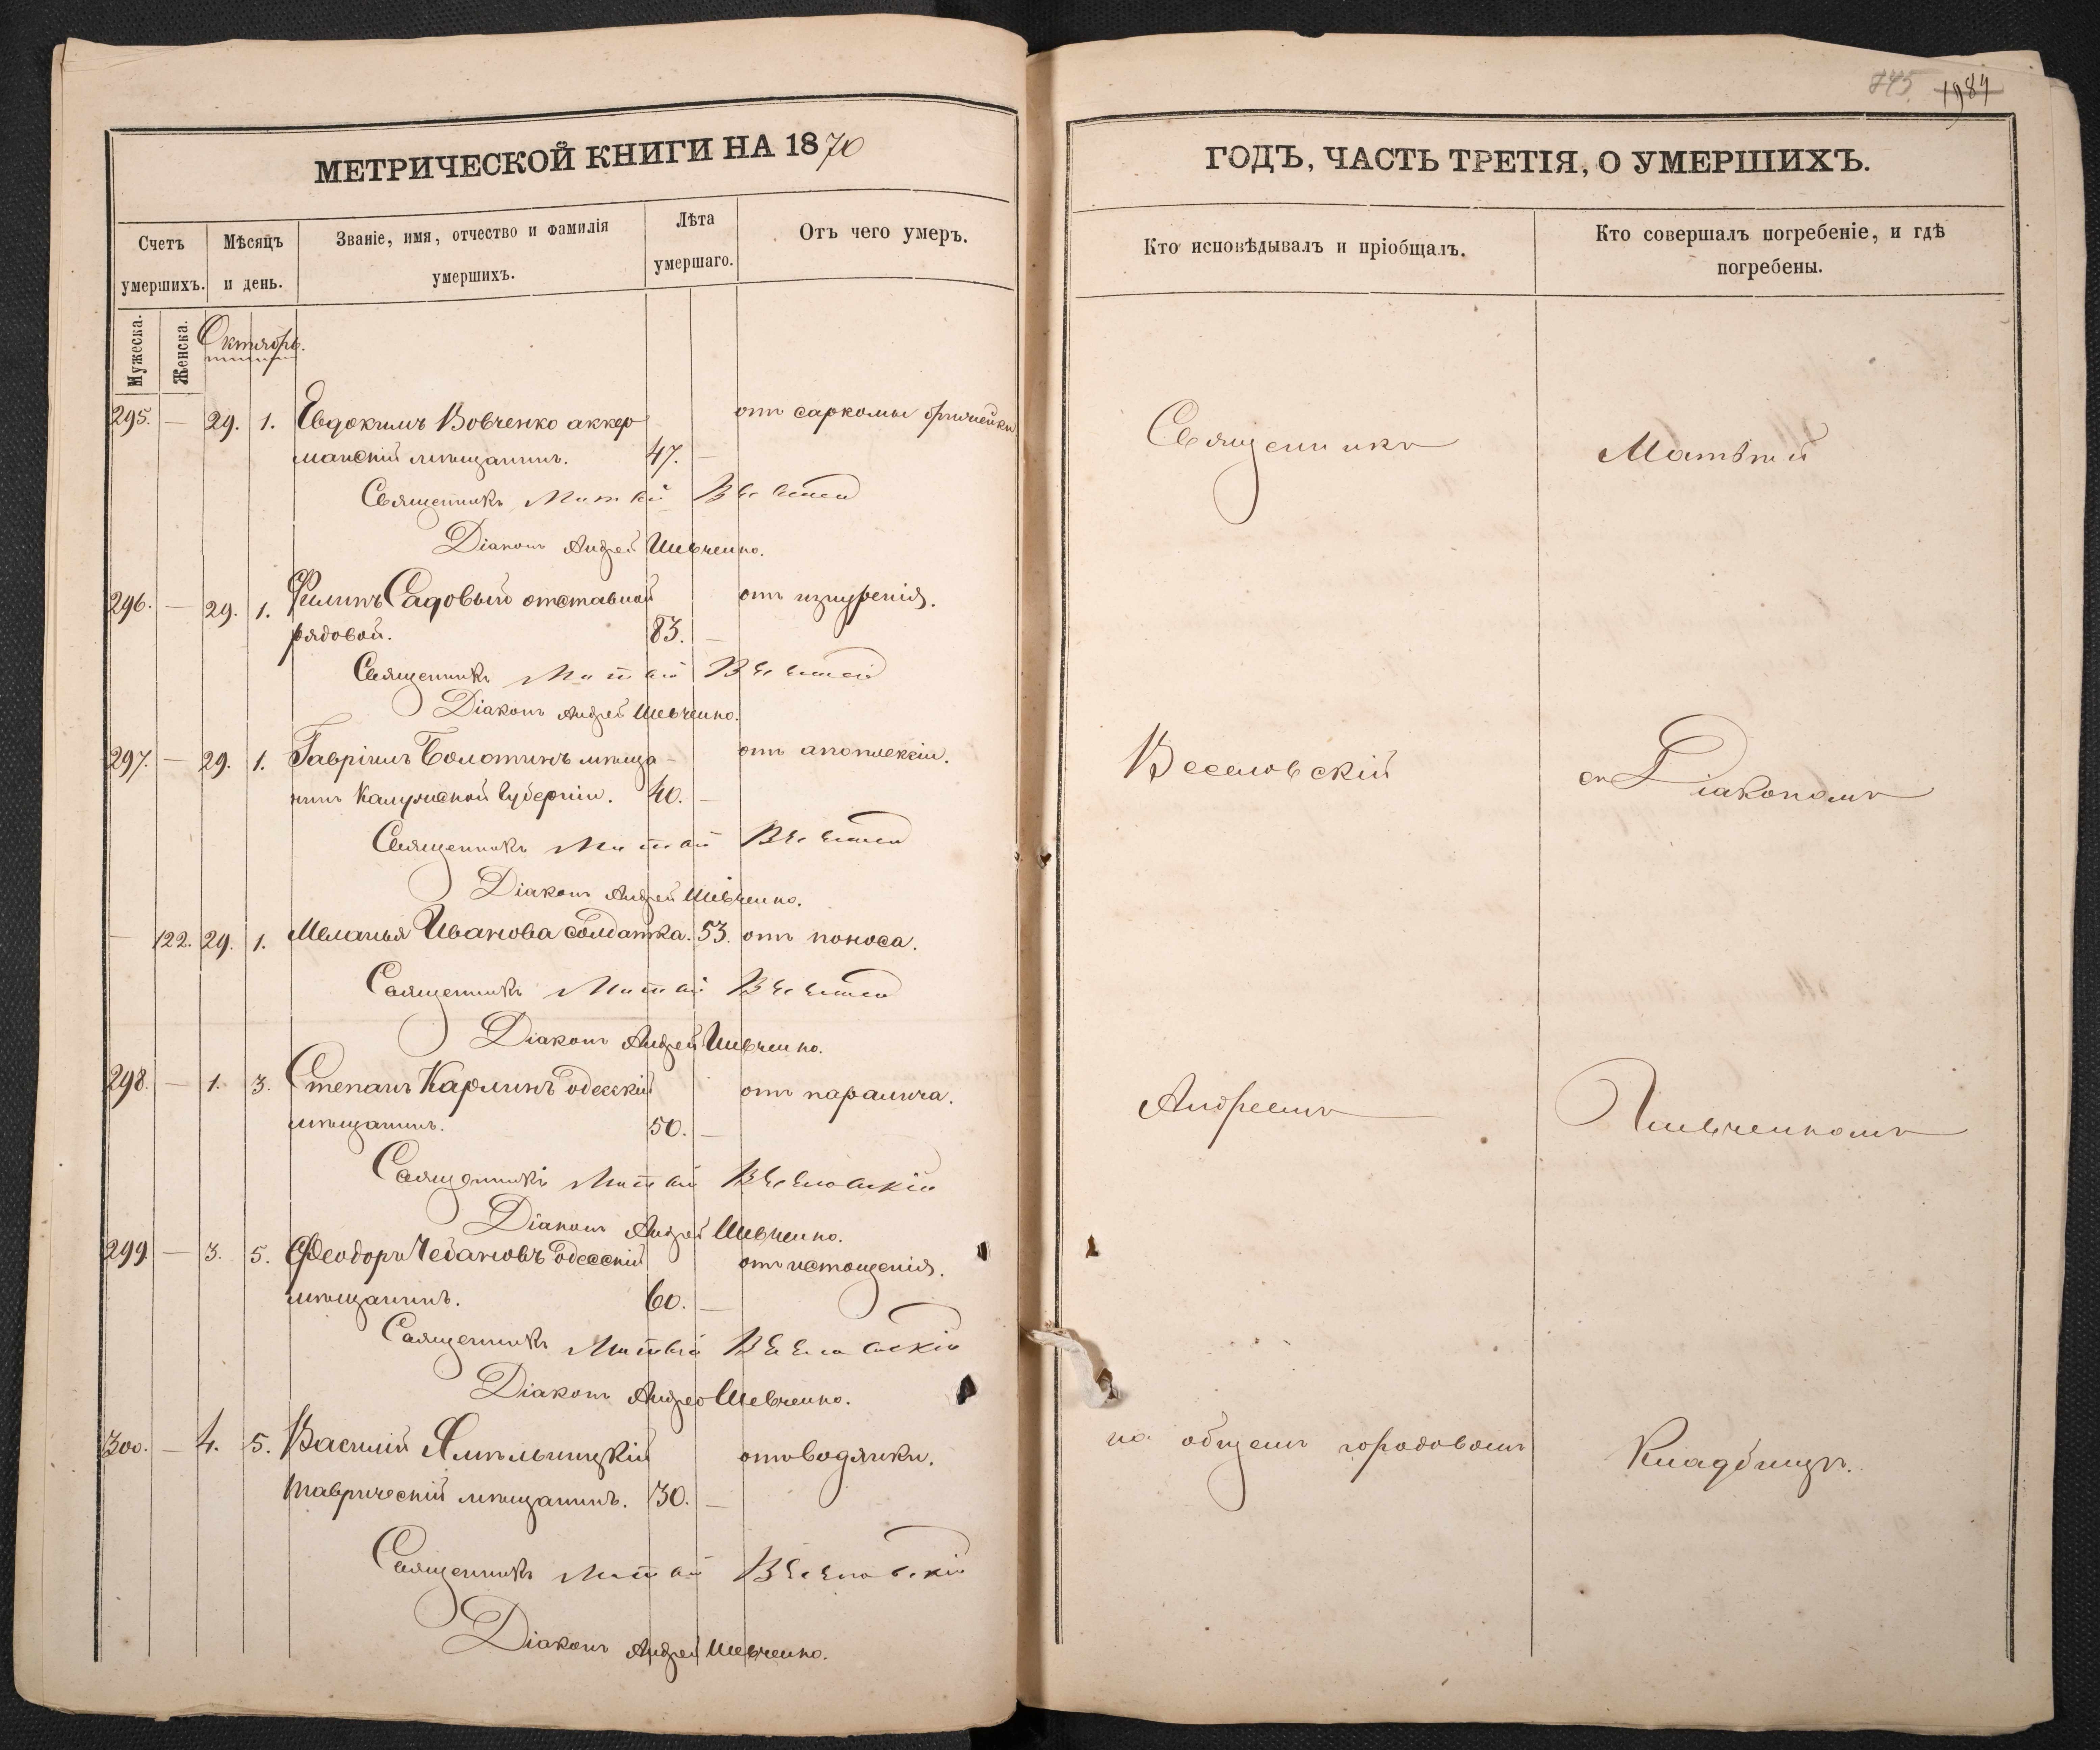 МЕТРИЧЕСКОЙ КНИГИ НА 1870
Счетъ умершихъ.
Мѣсяцъ и день.
Званіе, имя, отчество и фамилія умершихъ.
Лѣта умершаго.
Отъ чего умеръ.
Мужеска.
Женска.
Октябрь.
295. — 29. 1. Евдокимъ Вовченко аккер отъ саркомы
манскій мѣщанинъ. 47. —
Священникъ Матвѣй Веселовскій
Діаконъ Андрей Шевченко.
296. — 29. 1. Филипъ Садовый отставной отъ изнуренія.
рядовой. 83. —
Священникъ Матвѣй Веселовскій
Діаконъ Андрей Шевченко.
297. — 29. 1. Гавріилъ Болотинъ мѣща- отъ апоплексіи.
нинъ Калужской Губерніи. 40. —
Священникъ Матвѣй Веселовскій
Діаконъ Андрей Шевченко.
— 122. 29. 1. Меланья Иванова солдатка. 53. отъ поноса.
Священникъ Матвѣй Веселовскій
Діаконъ Андрей Шевченко.
298. — 1. 3. Степанъ Карлинъ одесскій отъ паралича.
мѣщанинъ. 50. —
Священникъ Матвѣй Веселовскій
Діаконъ Андрей Шевченко.
299. — 3. 5. Феодоръ Чебановъ одесскій отъ истощенія.
мѣщанинъ. 60. —
Священникъ Матвѣй Веселовскій
Діаконъ Андрей Шевченко.
300. — 4. 5. Василій Ямпольницкій отъ водянки.
таврическій мѣщанинъ. 30. —
Священникъ Матвѣй Веселовскій
Діаконъ Андрей Шевченко.
745. 1984
ГОДЪ, ЧАСТЬ ТРЕТІЯ, О УМЕРШИХЪ.
Кто исповѣдывалъ и пріобщалъ.
Кто совершалъ погребеніе, и гдѣ
погребены.
Священникъ Матвѣй
Веселовскій съ Діакономъ
Андреемъ Шевченкомъ
на общемъ городовомъ Кладбищѣ.